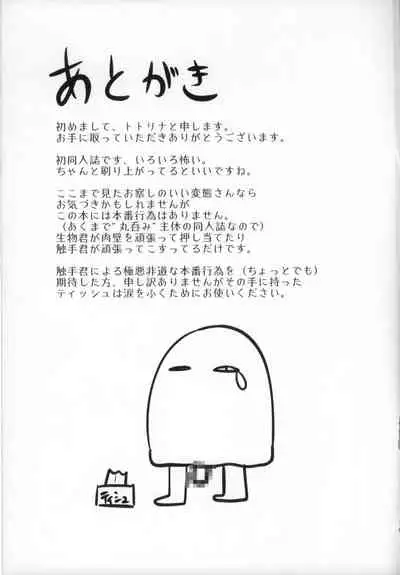 あとがき
初めまして、トトリナと申します。
お手に取っていただきありがとうございます。
初同人誌です、いろいろ怖い。
ちゃんと刷り上がってるといいですね。
ここまで見たお察しのいい変態さんなら
お気づきかもしれませんが
この本には本番行為はありません。
（あくまで"丸呑み"主体の同人誌なので）
生物君が肉壁を頑張って押し当てたり
触手君が頑張ってこすってるだけです。
触手君による極悪非道な本番行為を（ちょっとでも）
期待した方、申し訳ありませんがその手に持った
ティッシュは涙をふくためにお使いください。
ティシュ